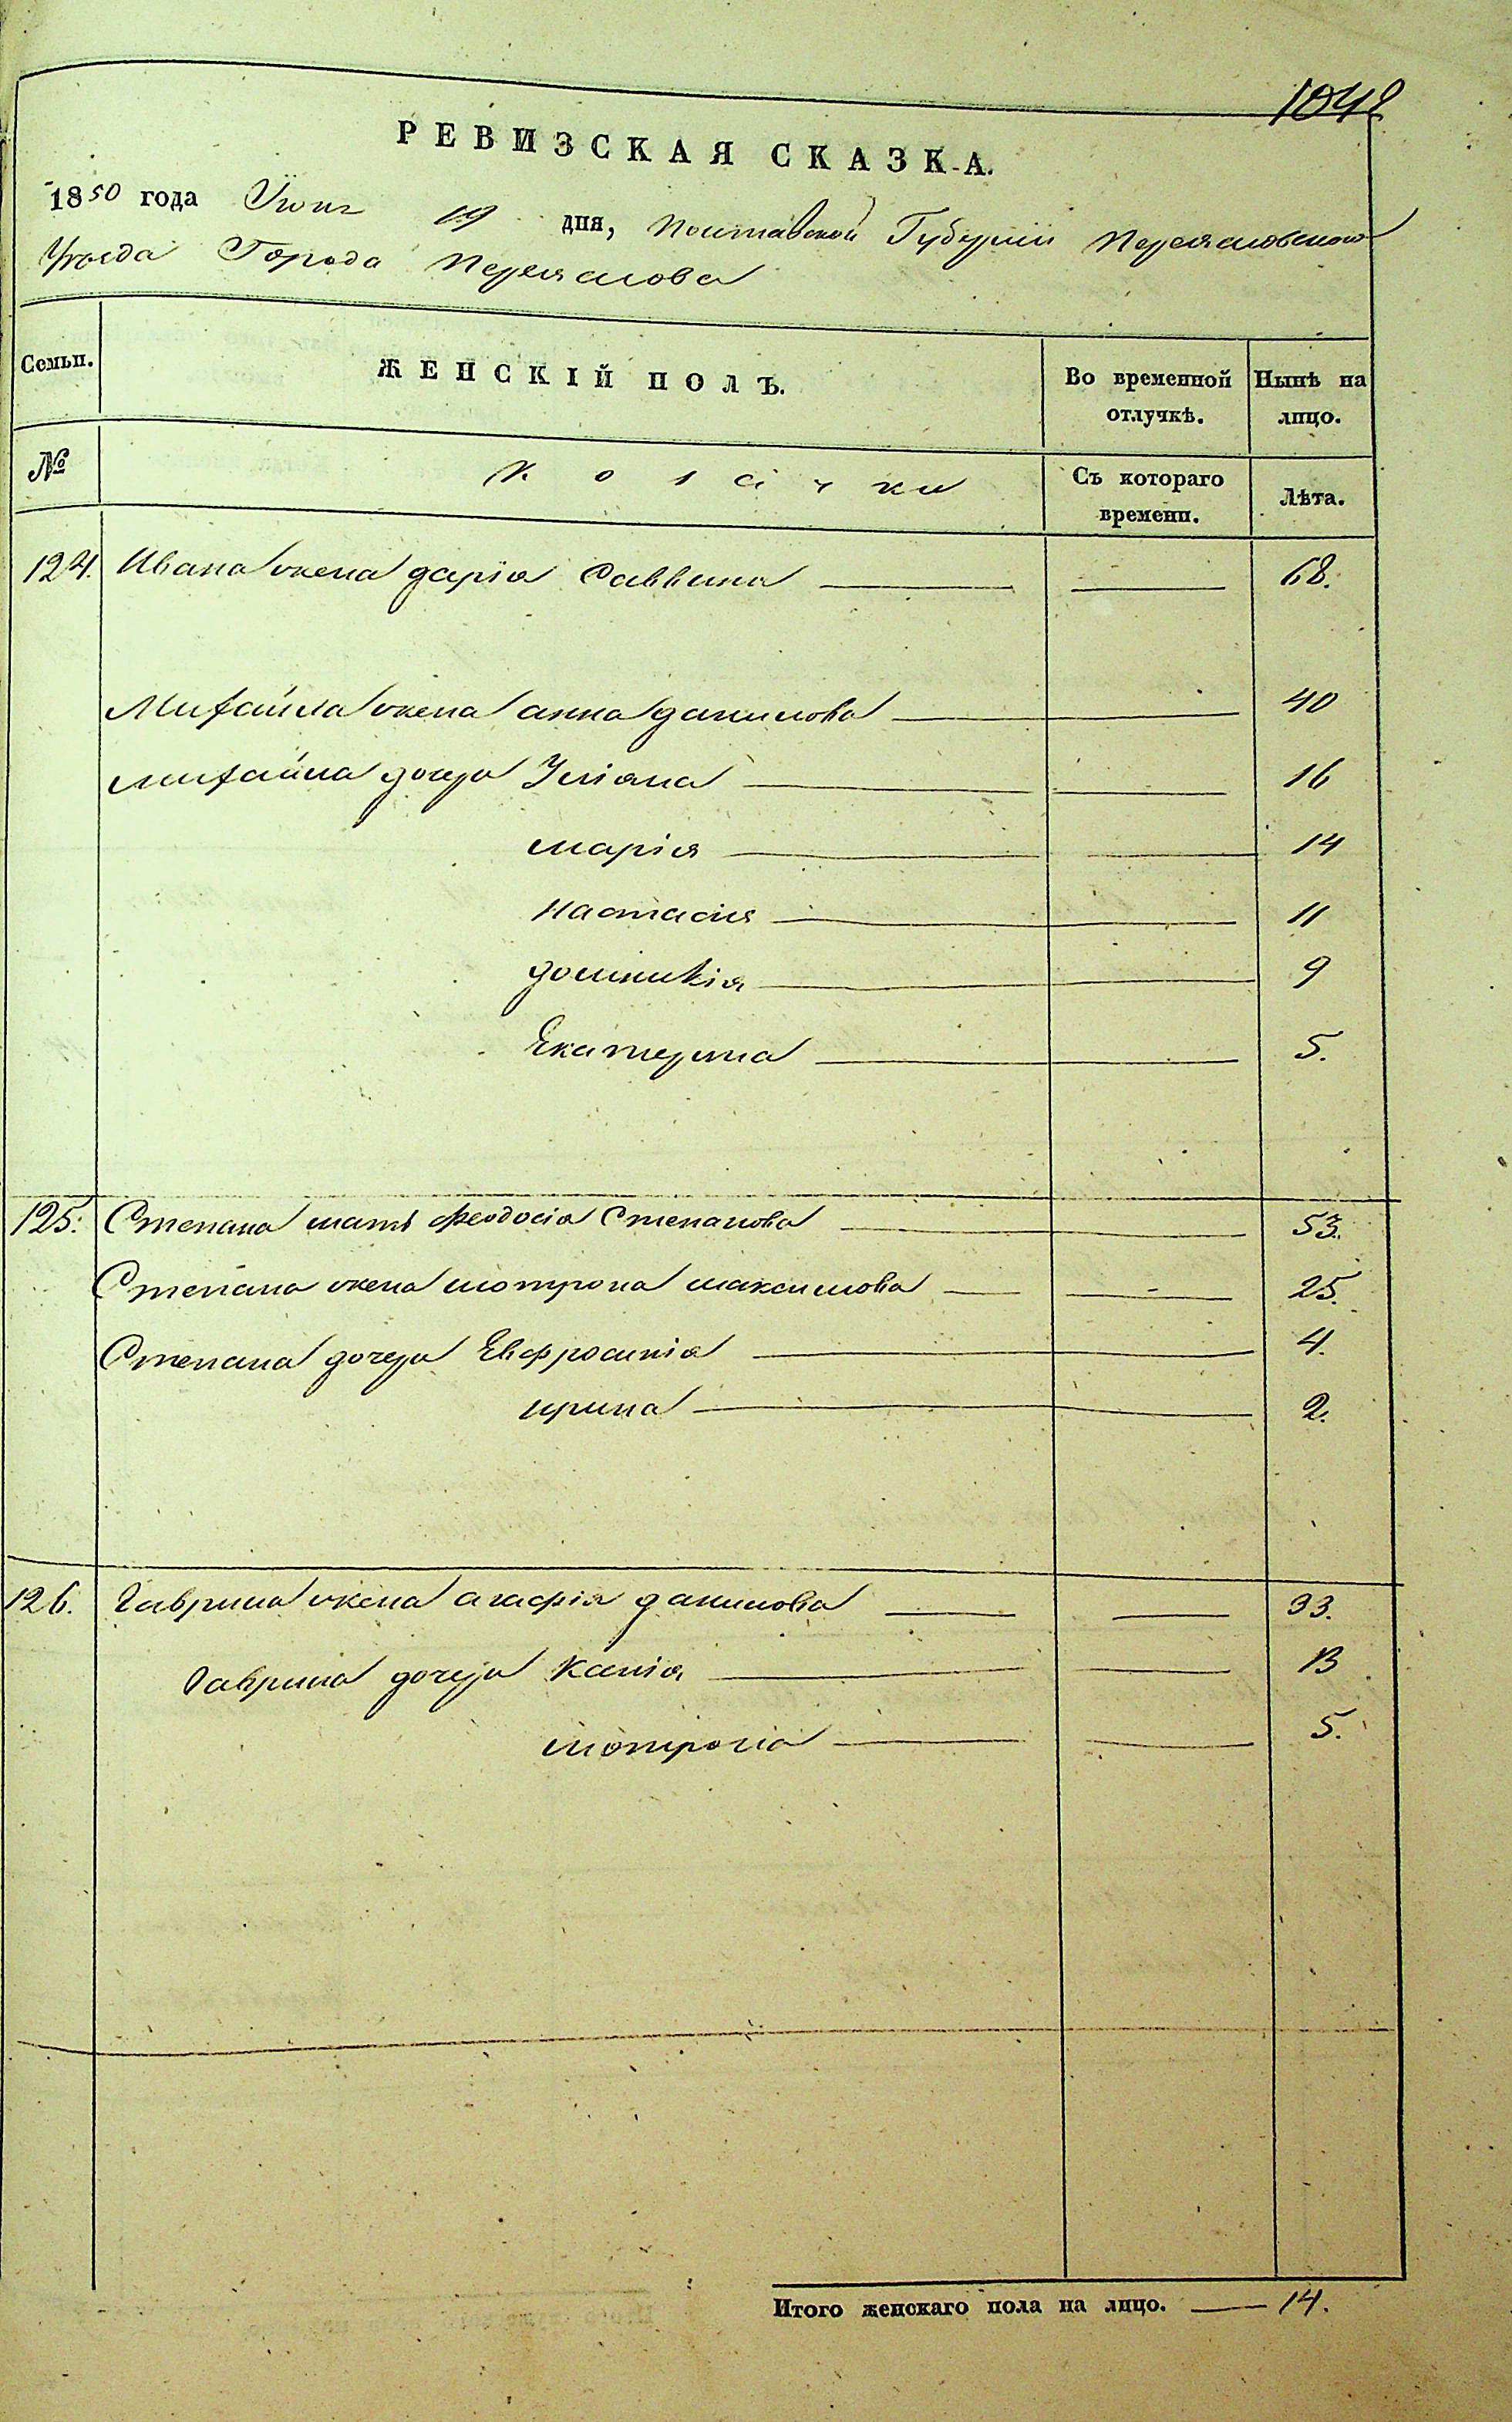 1042
РЕВИЗСКАЯ СКАЗКА.
1850 года Июня 19 дня, Полтавской Губерніи Переяславского
Уѣзда Города Переяслова
Семьи. ЖЕНСКІЙ ПОЛЪ. Во временной отлучкѣ. Нынѣ на лицо.
№ Козачки Съ котораго времени. Лѣта.
124. Ивана жена дарія Саввина — — 68.
Михайла жена анна данилова — 40
михайла дочери Уліяна — — 16
марія — — 14
настасія — 11
домникія — 9
Екатерина — 5.
125. Степана мать феодосія Степанова — 53.
Степана жена мотрона максимова — — 25.
Степана дочери Евфросинія — 4.
ирина — 2.
126. Гаврила жена агафія данилова — — 33.
Гаврила дочери Ксенія — — 13
мотрона — — 5.
Итого женскаго пола на лицо. — 14.